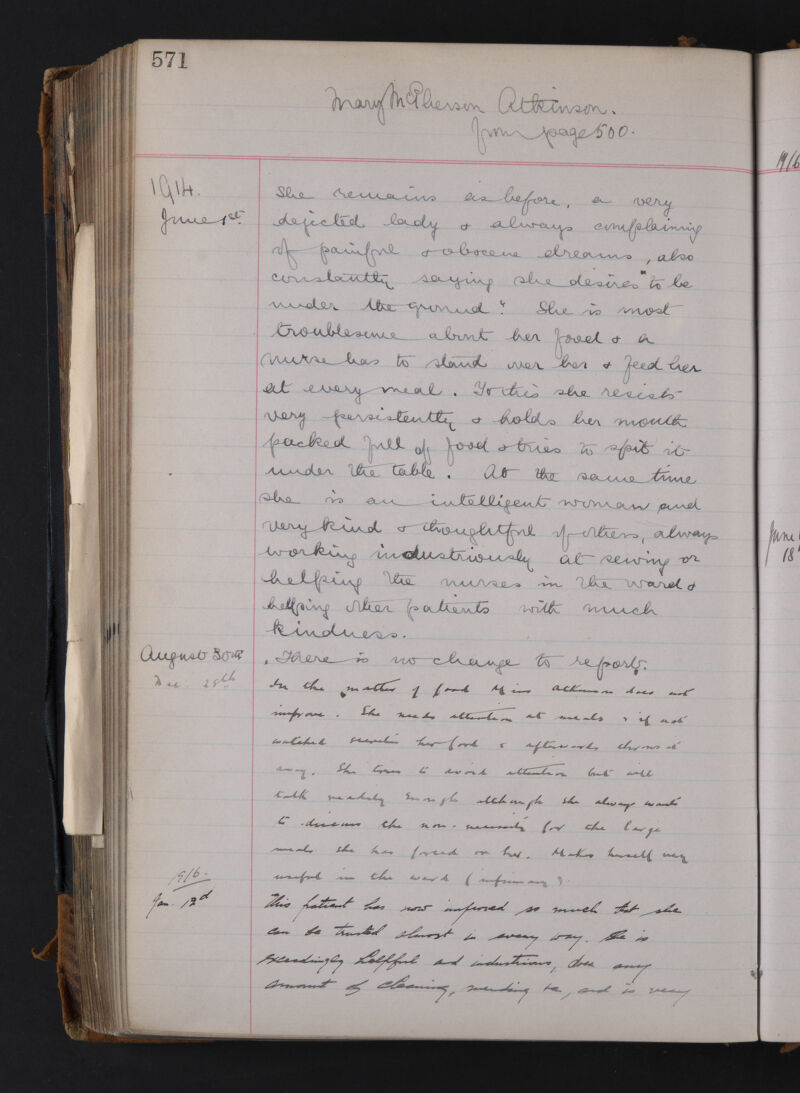 571
Mary McPherson Atkinson.
from page 500.
1914.
June 1st.
She remains as before, a very
dejected lady & always complaining
of painful & obscene dreams, also
constantly saying she desires "to be
under the ground". She is most
troublesome about her food & a
nurse has to stand over her & feed her
at every meal. To this she resists
very persistently & holds her mouth
packed full of food & tries to spit it
under the table. At the same time
she is an intelligent woman and
very kind & thoughtful of others, always
working industriously at sewing or
helping the nurses in the ward &
helping other patients with much
kindness.
August 30th
There is no change to report.
Dec. 29th
In the matter of food Miss Atkinson does not
improve. She needs attention at meals & if not
watched secretes her food & afterwards throws it
away. She tries to avoid attention but will
talk readily enough although she always wants
to discuss the non-necessity for the large
meals she has forced on her. Makes herself very
useful in the ward (infirmary).
1916.
Jan. 13d
This patient has now improved so much that she
can be trusted almost in every way. She is
exceedingly helpful and industrious, does any
amount of cleaning, mending &c, and is very
1916
June
18